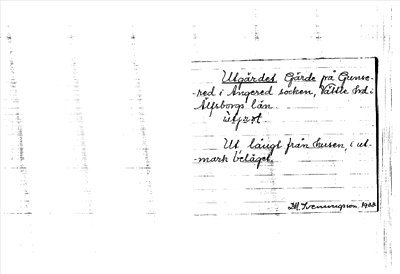 Utgärdet Gärde på Gunse-
-red i Angered socken, Vättle hrd i
Älfsborgs län.
ùtjæṛt
Ut långt från husen, i ut-
mark beläget.
M. Svenungsson 1923